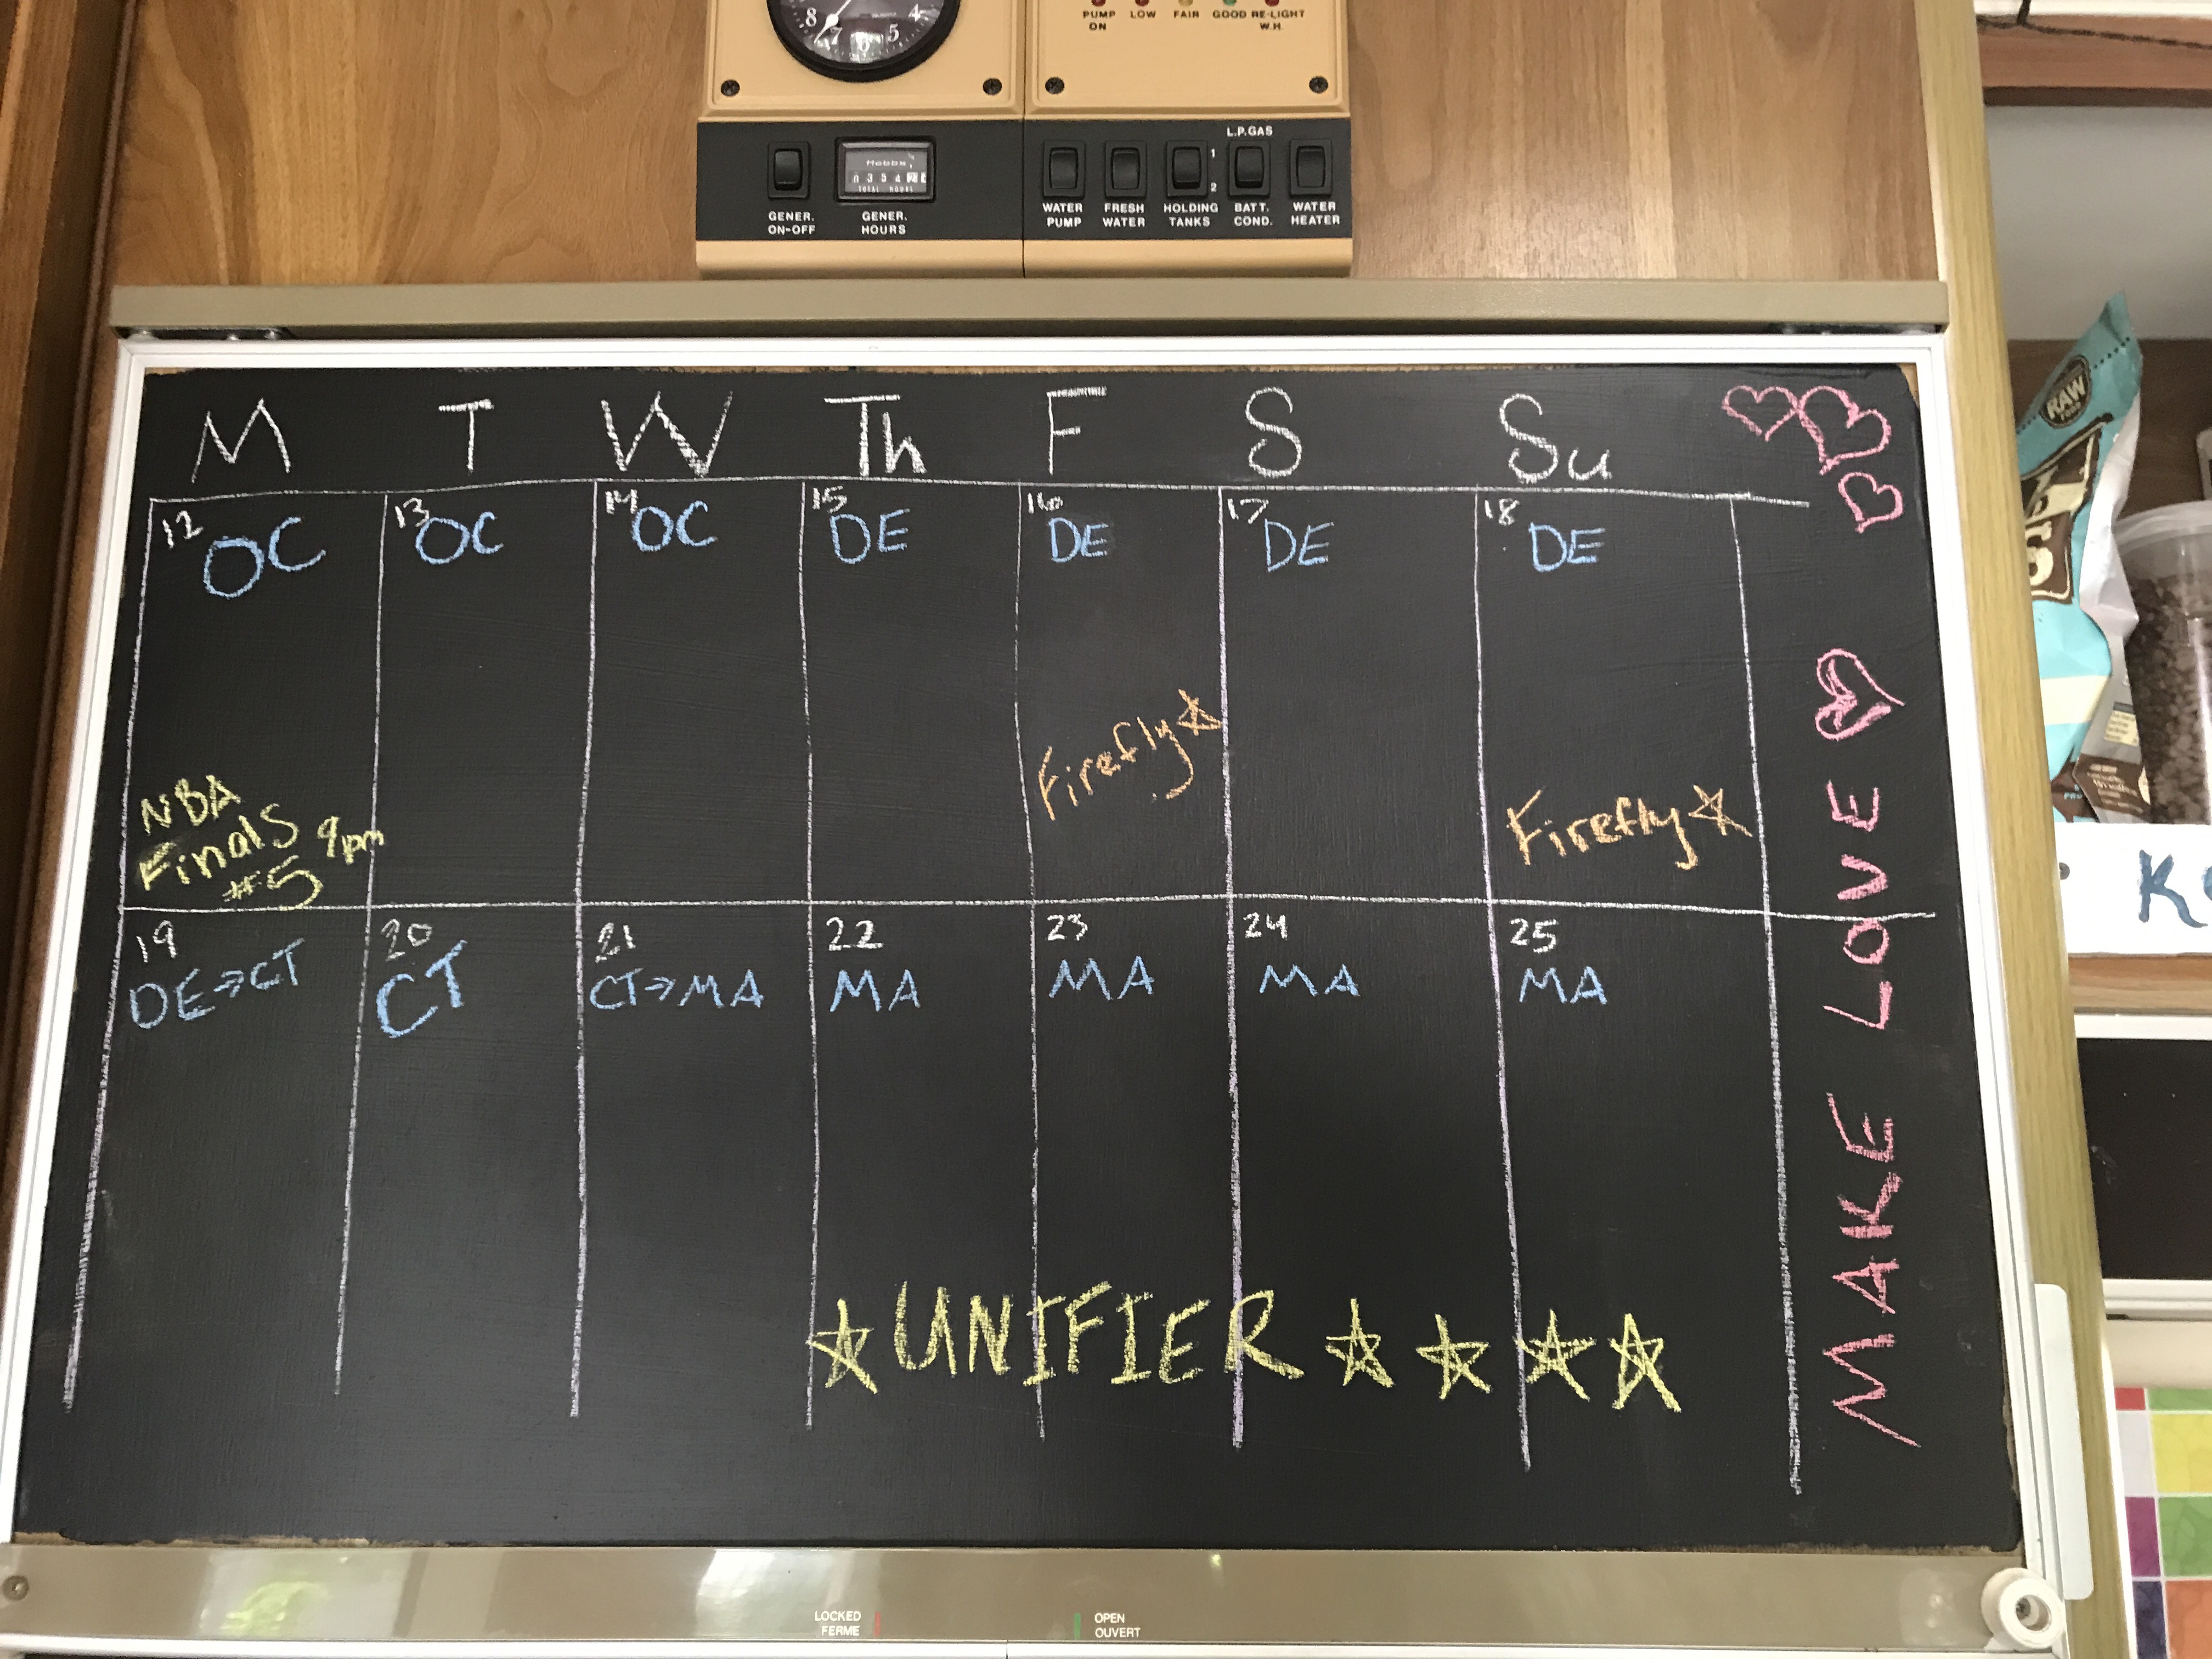 8 7 6 5 4
PUMP ON LOW FAIR GOOD RE-LIGHT W.H.
L.P.GAS
Hobbs
TOTAL HOURS
1
2
GENER. ON-OFF
GENER. HOURS
WATER PUMP
FRESH WATER
HOLDING TANKS
BATT. COND.
WATER HEATER
M T W Th F S Su
12 13 14 15 16 17 18
OC OC OC DE DE DE DE
Firefly
Firefly
NBA
Finals 9pm
#5
19 20 21 22 23 24 25
DE→CT CT CT→MA MA MA MA MA
UNIFIER
MAKE LOVE
RAW
K
LOCKED
FERME
OPEN
OUVERT